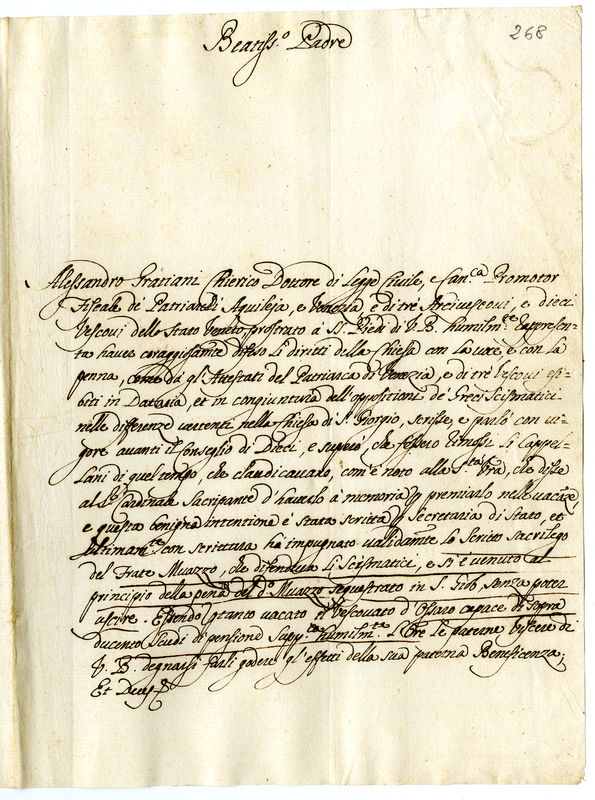 268
Beatiss.o Padre
Alessandro Graziani Chierico Dottore di Legge Civile, e Can.ca Promotor
Fiscale de Patriarchi Aquileja, e Venezia e di trè Arcivescovi, e dieci
Vescovi dello Stato Veneto prostrato a SS. Piedi di V. B. humilm.te rappresen-
ta haver coraggiosam.te difeso li diritti della Chiesa con la voce, e con la
penna, come dà gl'Attestati del Patriarca di Venezia, e di trè Vescovi esi-
biti in Dataria, et in congiuntura dell'oppositioni de Greci Scismatici
nelle differenze vertenti nella Chiesa di S. Giorgio, scrisse, e parlò con vi-
gore avanti il Conseglio di Dieci, e superò, che fossero rimossi li Cappel-
lani di quel tempo, che claudicavano, com'è noto alla S.tà V.ra, che disse
al S.r Cardinale Sacripante d'haverlo à memoria p premiarlo nelle vacãze,
e questa benigna intentione è stata scritta p Secretaria di Stato, et
ultimam.te con scrittura hà impugnato validam.te lo Scritto sacrilego
del Frate Muazzo, che difendeva li Scismatici, e si è venuto al
principio della pena del d.o Muazzo sequestrato in S. Giob, senza poter
uscire. Essendo p tanto vacato il Vescovato d'Ossaro capace di sopra
ducento scudi di pensione supp.ca humilm.te l'Ore le paterne viscere di
V. B. degnarsi farli godere gl'effetti della sua paterna Beneficenza;
Et Deus